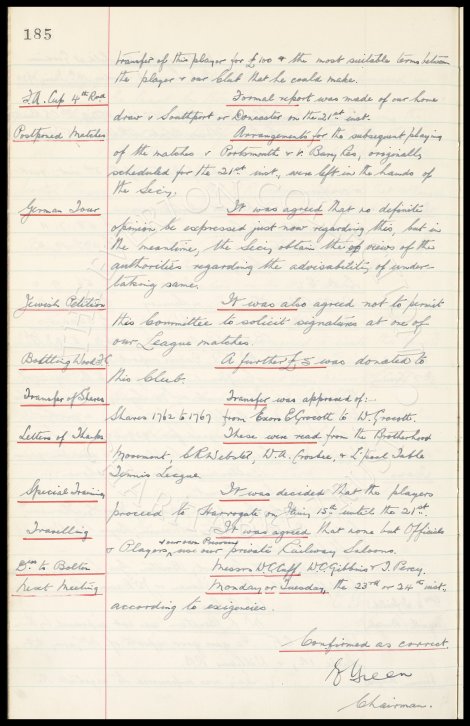 185
transfer of this player for £100 & the most suitable terms between
the player & our Club that he could make.
F.A. Cup 4th Rnd. Formal report was made of our home
draw v Southport or Doncaster on the 21st inst.
Postponed Matches Arrangements for the subsequent playing
of the matches v Portsmouth & v. Bury Res, originally
scheduled for the 21st inst., were left in the hands of
the Secy.
German Tour It was agreed that no definite
opinion be expressed just now regarding this, but in
the meantime, the Secy obtain the views of the
authorities regarding the advisability of under-
taking same.
Jewish Petition It was also agreed not to permit
this Committee to solicit signatures at one of
our League matches.
A further £5 was donated to
this Club.
Transfer of Shares Transfer was approved of:-
Shares 1762 to 1767 from Exors E Grocott to W. Grocott.
Letters of Thanks These were read from the Brotherhood
Movement, C.R. Webster, W.A. Crosbie, & L'pool Table
Tennis League
Special Training It was decided that the players
proceed to Harrogate on Jany 15th until the 21st.
Travelling It was agreed that none but Officials
& Players, & our own Pressmen use our private Railway Saloons.
Do. to Bolton Messrs W Cuff, W.C. Gibbins & T. Percy.
Next Meeting Monday or Tuesday, the 23rd or 24th inst,
according to exigencies.
Confirmed as correct.
E Green
Chairman.